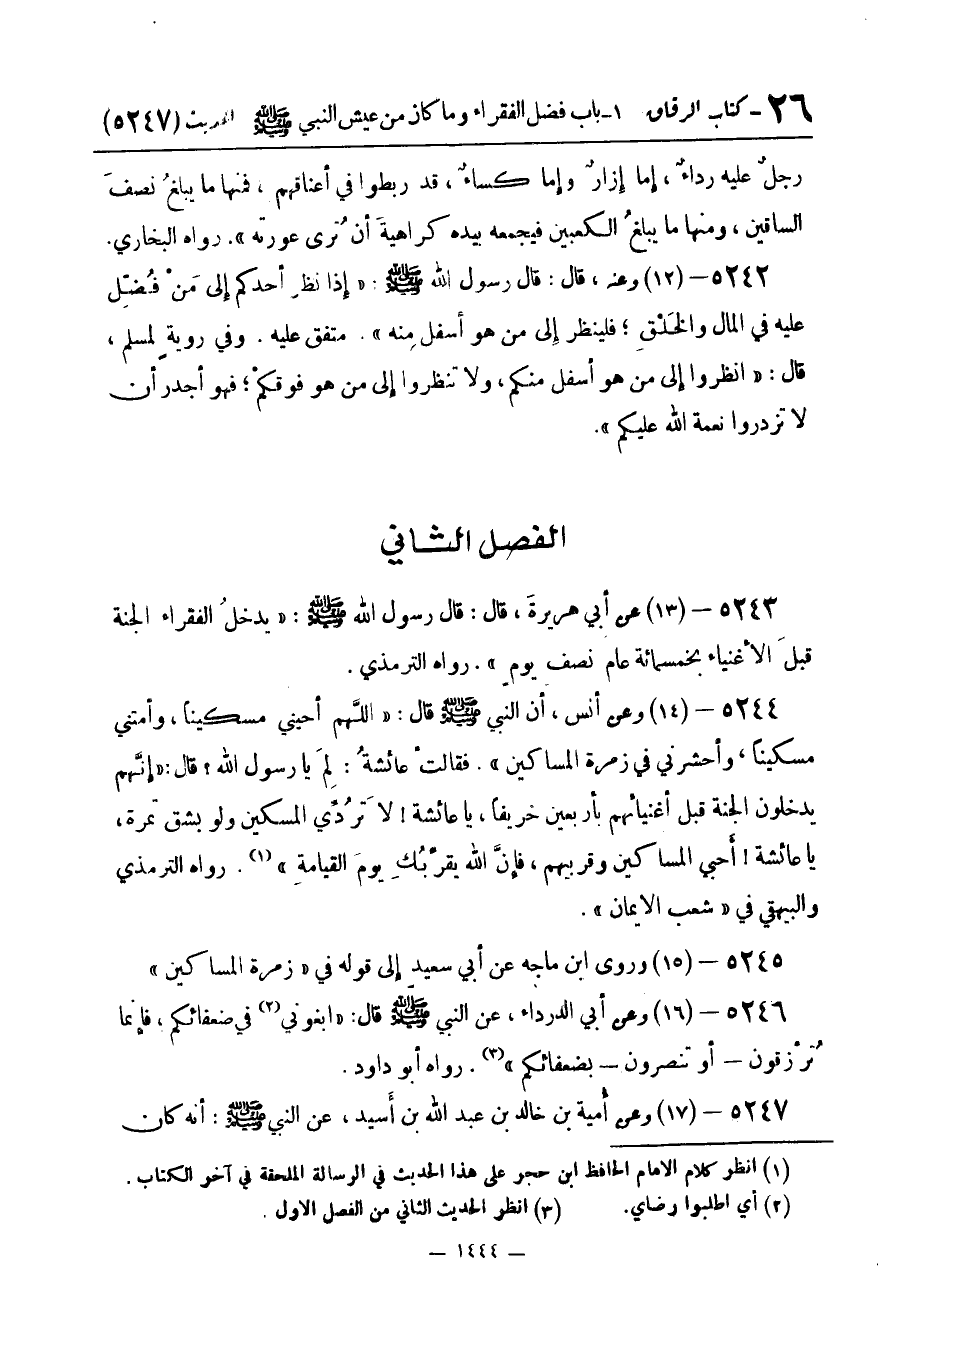 ٢٦ - كتاب الرقاق ١ - باب فضل الفقراء وما كان من عيش النبي ﷺ الحديث (٥٢٤٧)
رجلٌ عليه رداءٌ ، إما إزارٌ وإما كساءٌ ، قد ربطوا في أعناقهم ، فمنها ما يبلغُ نصفَ
الساقين ، ومنها ما يبلغُ الكعبين فيجمعه بيده كراهيةَ أن تُرى عورته ». رواه البخاري.
٥٢٤٢ – (١٢) وعنه ، قال : قال رسول الله ﷺ : « إذا نظر أحدكم إلى مَنْ فُضِّل
عليه في المال والخَلْقِ ؛ فلينظر إلى من هو أسفل منه » . متفق عليه . وفي رويةٍ لمسلم ،
قال : « انظروا إلى من هو أسفل منكم ، ولا تنظروا إلى من هو فوقكمْ ؛ فهو أجدر أن
لا تزدروا نعمة الله عليكم ».
الفصل الثاني
٥٢٤٣ – (١٣) عن أبي هريرةَ ، قال : قال رسول الله ﷺ : « يدخلُ الفقراء الجنة
قبلَ الأغنياء بخمسمائة عام نصف يومٍ » . رواه الترمذي .
٥٢٤٤ – (١٤) وعن أنس ، أن النبي ﷺ قال : « اللَّهم أحيني مسكيناً ، وأمتني
مسكيناً ، وأحشرني في زمرة المساكين » . فقالتْ عائشةُ : لِمَ يا رسول الله ؟ قال : « إنَّهم
يدخلون الجنة قبل أغنيائهم بأربعين خريفاً ، يا عائشة ! لا تَرُدِّي المسكين ولو بشق تمرة ،
يا عائشة ! أَحبي المساكين وقربيهم ، فإنَّ الله يقرِّبُكِ يومَ القيامةِ » (١) . رواه الترمذي
والبيهقي في « شعب الايمان » .
٥٢٤٥ – (١٥) وروى ابن ماجه عن أبي سعيدٍ إلى قوله في « زمرة المساكين »
٥٢٤٦ – (١٦) وعن أبي الدرداء ، عن النبي ﷺ قال: « ابغوني (٢) في ضعفائكم ، فإنما
تُرْزقون – أو تنصرون – بضعفائكم » (٣) . رواه أبو داود .
٥٢٤٧ – (١٧) وعن أُمية بن خالد بن عبد الله بن أَسيد ، عن النبي ﷺ : أنه كان
(١) انظر كلام الامام الحافظ ابن حجر على هذا الحديث في الرسالة الملحقة في آخر الكتاب .
(٢) أي اطلبوا رضاي. (٣) انظر الحديث الثاني من الفصل الاول .
– ١٤٤٤ –